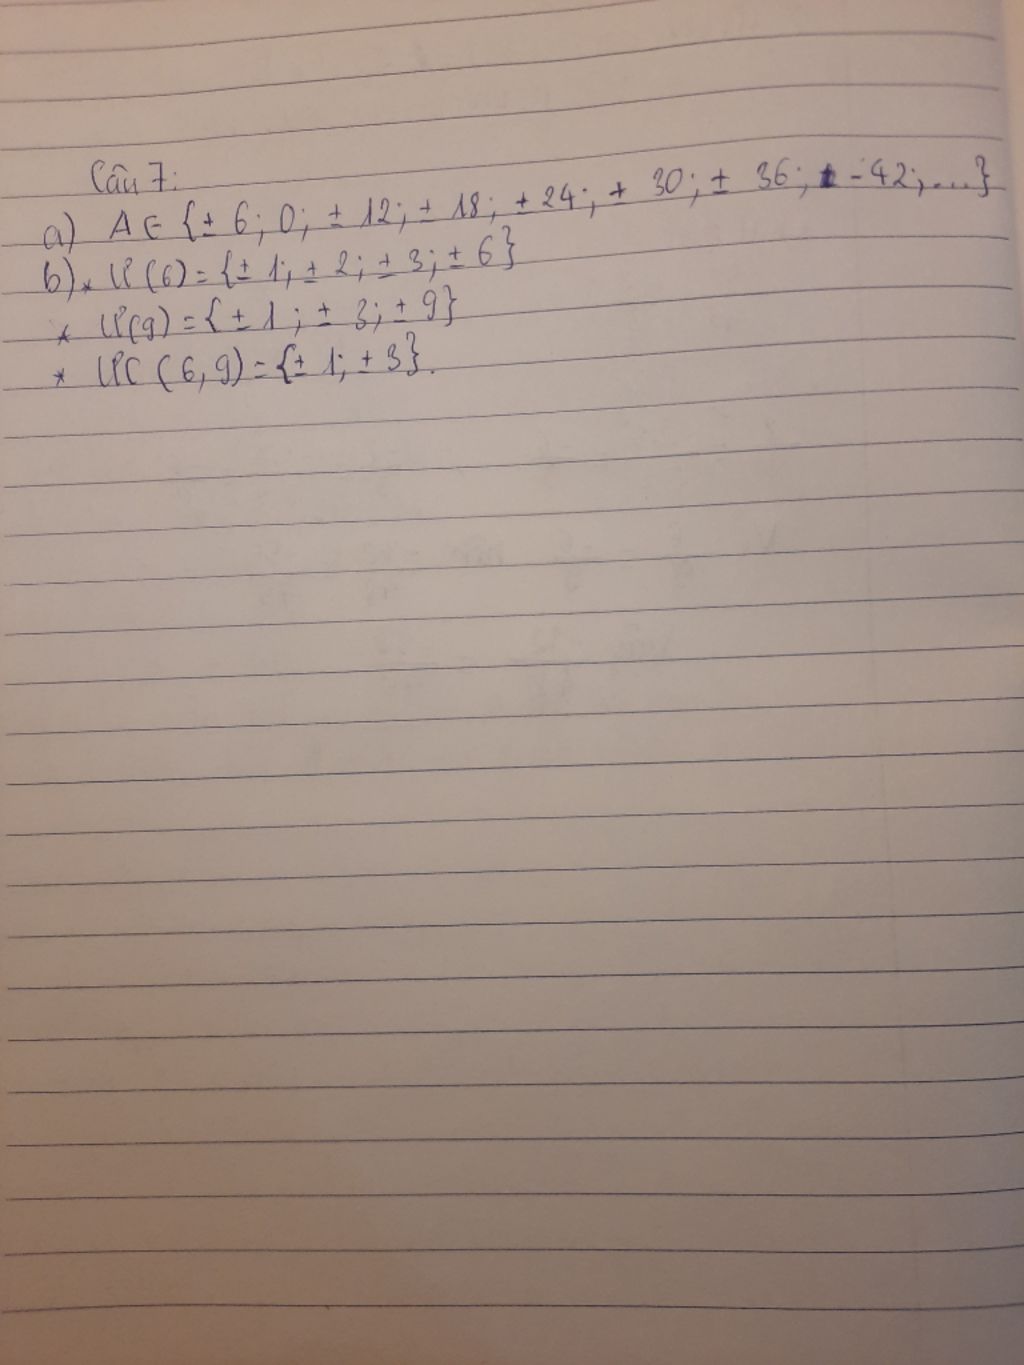 Câu 7:
a) A ∈ {± 6; 0; ± 12; ± 18; ± 24; ± 30; ± 36; -42; ...}
b) * Ư(6) = {± 1; ± 2; ± 3; ± 6}
* Ư(9) = {± 1; ± 3; ± 9}
* ƯC (6,9) = {± 1; ± 3}.